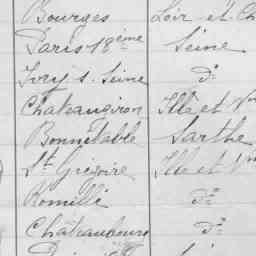 Bourges Loir et Ch
Paris 18ème Seine
Ivry s. Seine d°
Chateaugiron Ille et Vil
Bonnetable Sarthe
St Grégoire Ille et Vil
Romillé d°
Chateaubourg d°